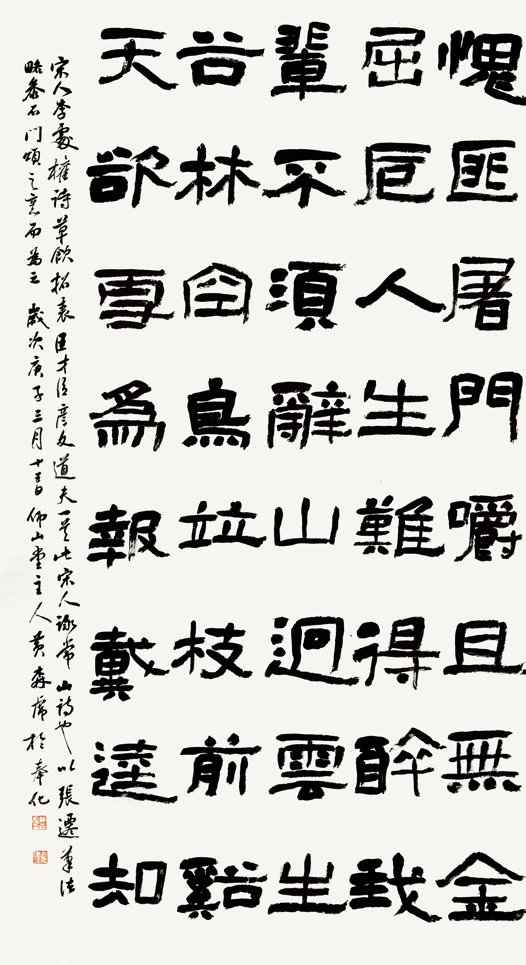 愧匪屠門嚼且無金
屈卮人生難得醉我
輩不須辭山迥雲生
谷林空鳥竝枝前谿
天欲雪為報戴逵知
宋人李處權詩草飲招表臣才臣彥文道夫一首此宋人詠常山詩也以張遷筆法
略參石門頌之意而為之 歲次庚子三月十日仰山堂主人黃森於奉化